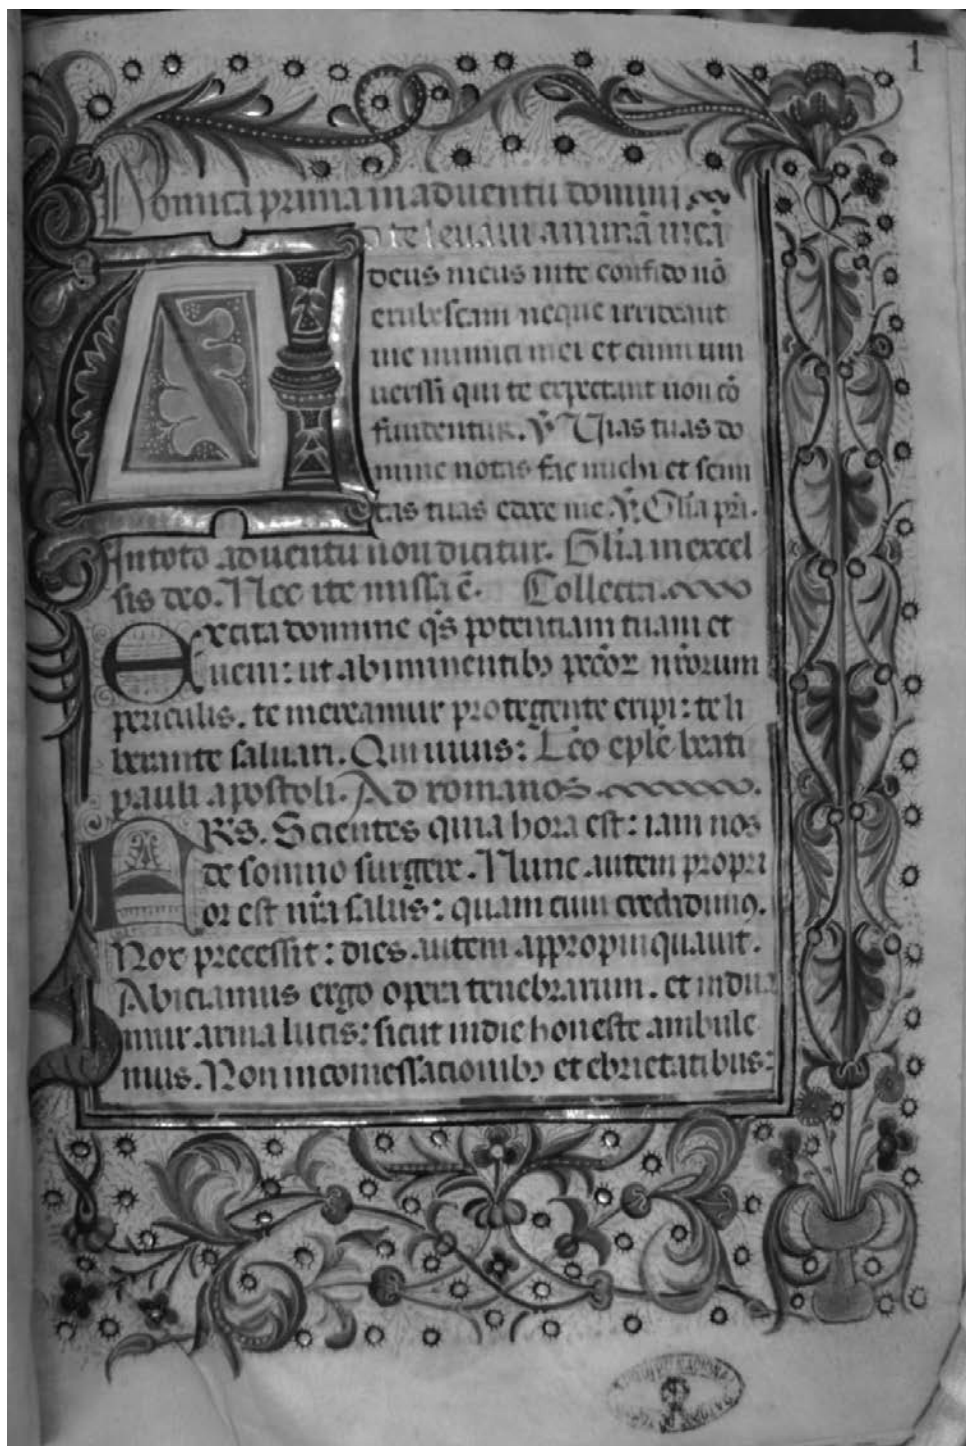 1
Domica prima in adventu domini
A d te levavi animā meā
deus meus in te confido nō
erubescam neque irrideant
me inimici mei et enim uni
uersi qui te expectant non cō
fundentur. ꝟ Vias tuas do
mine notas fac michi et semi
tas tuas edoce me. ꝟ. Gl̄ia pr̄i.
In toto adventu non dicitur. Gl̄ia in excel
sis deo. Nec ite missa ē. Collecta.
Excita domine q̄s potentiam tuam et
ueni: ut ab iminentibꝫ pccōꝝ nr̄orum
periculis. te mereamur protegente eripi: te li
berante saluari. Qui uiuis: Lēo eplē beati
pauli apostoli. Ad romanos
FR̄S. Scientes quia hora est: iam nos
de somno surgere. Nunc autem propri
or est nr̄a salus: quam cum credidimꝰ.
Nox precessit: dies autem appropinquauit.
Abiciamus ergo opera tenebrarum. et indua
mur arma lucis: sicut in die honeste ambule
mus. Non in comessacionibꝫ et ebrietatibus: